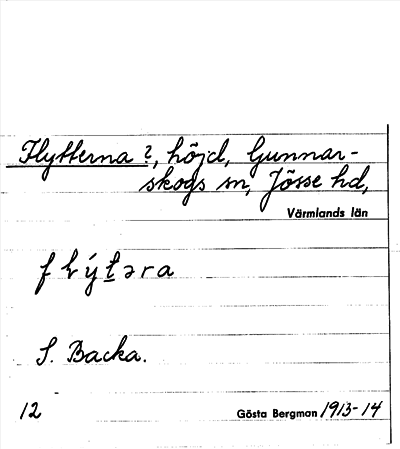 Flytterna ?, höjd, Gunnar-
skogs sn, Jösse hd,
Värmlands län
S. Backa.
12 Gösta Bergman 1913-14